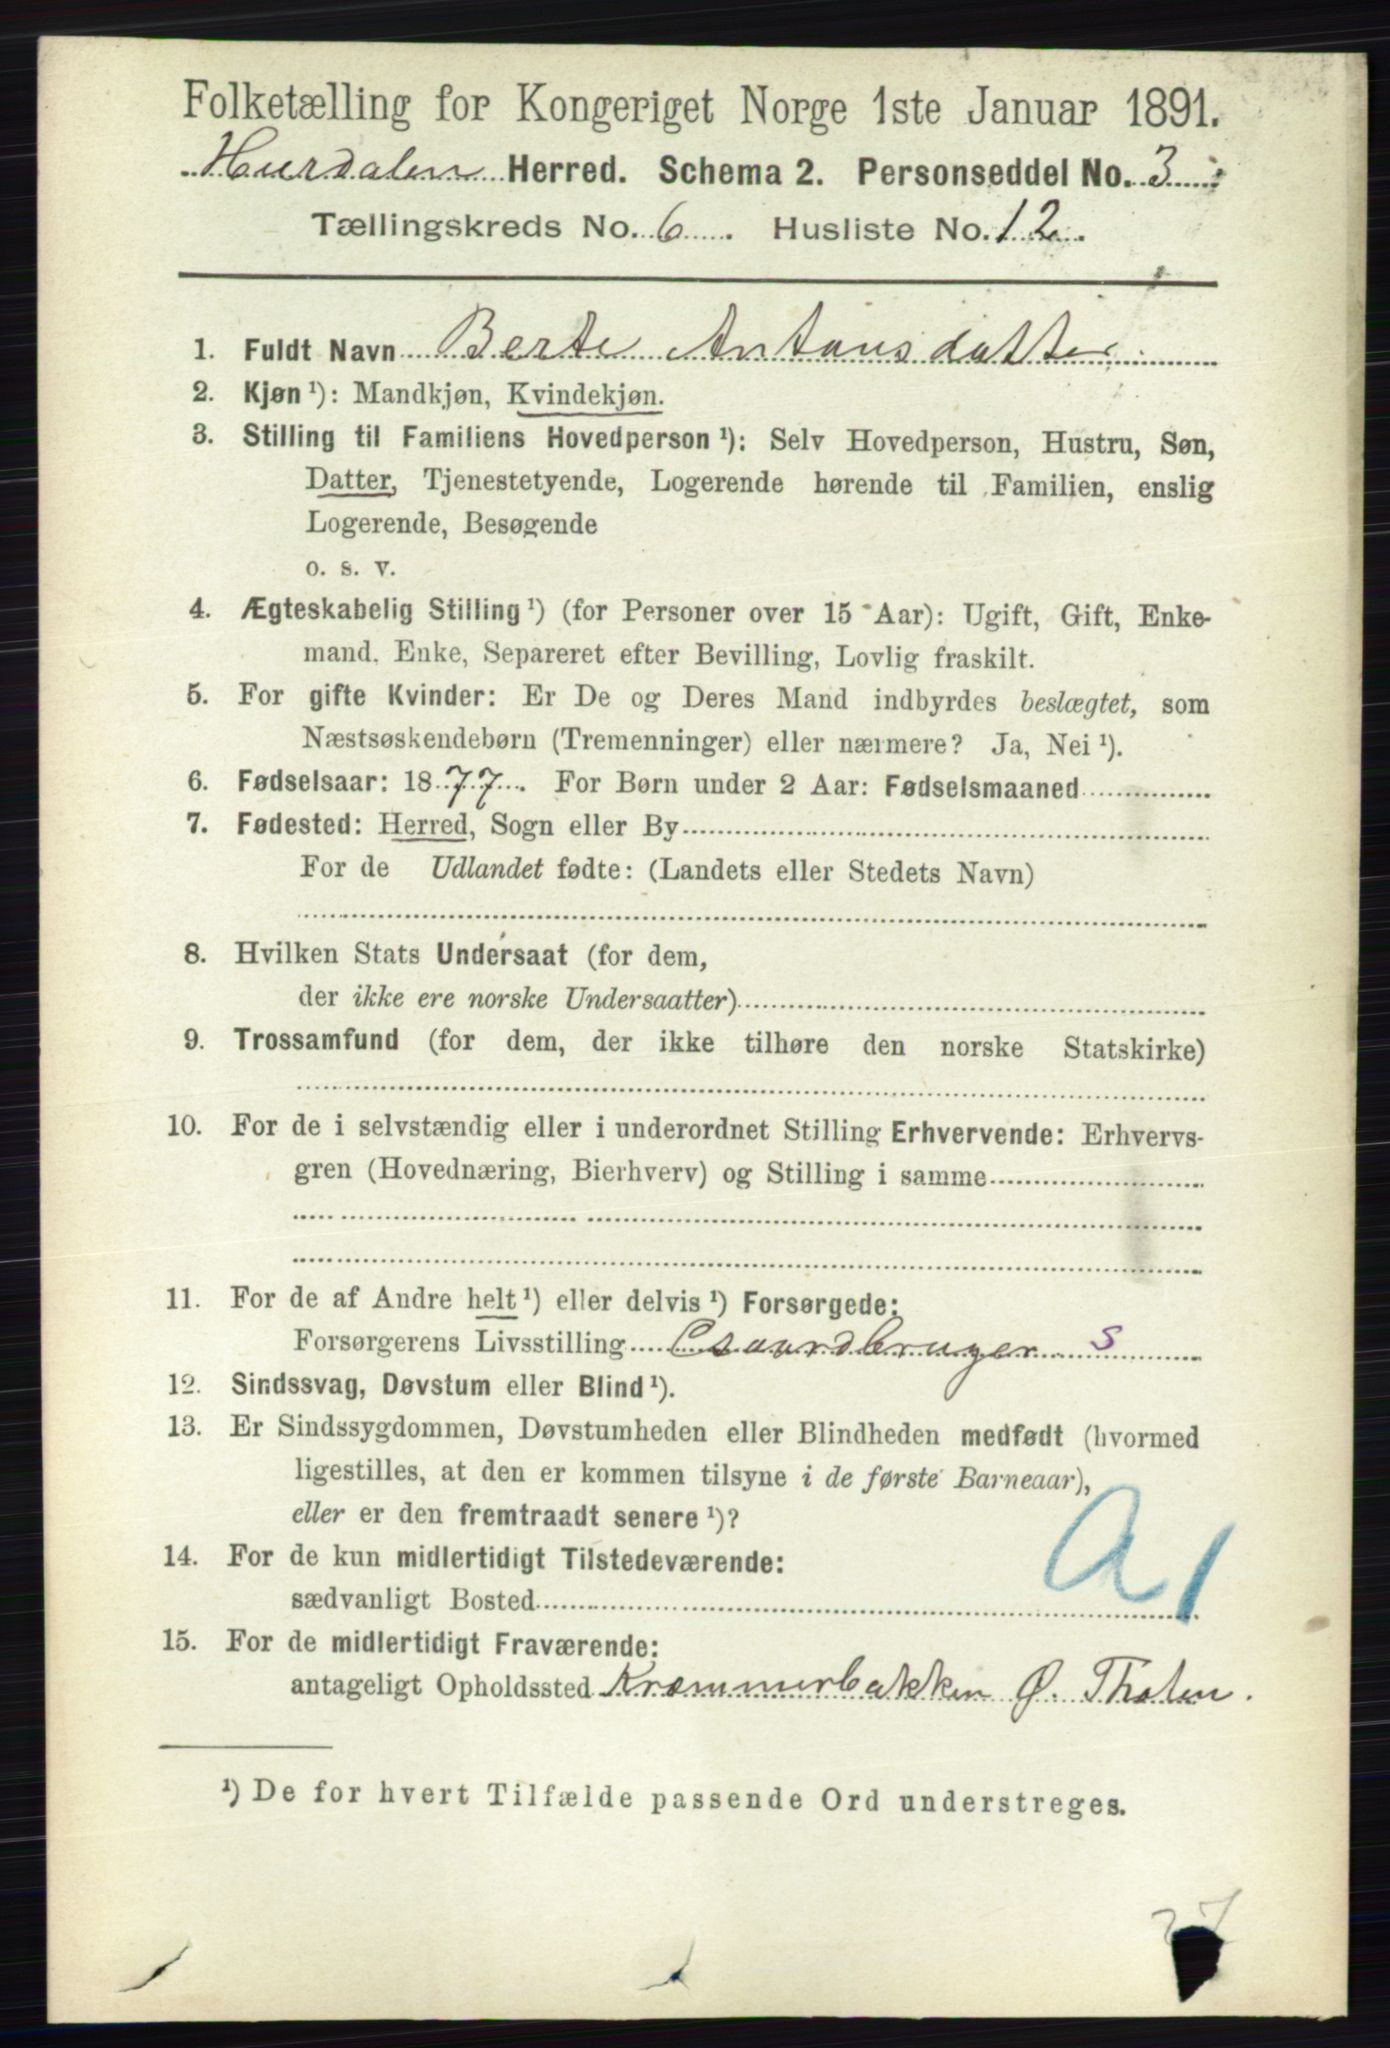 Folketælling for Kongeriget Norge 1ste Januar 1891.
Hurdalen Herred. Schema 2. Personseddel No. 3
Tællingskreds No. 6. Husliste No. 12.
1. Fuldt Navn Berte Antonsdatter
2. Kjøn ¹): Mandkjøn, Kvindekjøn.
3. Stilling til Familiens Hovedperson ¹): Selv Hovedperson, Hustru, Søn,
Datter, Tjenestetyende, Logerende hørende til Familien, enslig
Logerende, Besøgende
o. s. v.
4. Ægteskabelig Stilling ¹) (for Personer over 15 Aar): Ugift, Gift, Enke-
mand, Enke, Separeret efter Bevilling, Lovlig fraskilt.
5. For gifte Kvinder: Er De og Deres Mand indbyrdes beslægtet, som
Næstsøskendebørn (Tremenninger) eller nærmere? Ja, Nei ¹).
6. Fødselsaar: 1877. For Børn under 2 Aar: Fødselsmaaned
7. Fødested: Herred, Sogn eller By
For de Udlandet fødte: (Landets eller Stedets Navn)
8. Hvilken Stats Undersaat (for dem,
der ikke ere norske Undersaatter)
9. Trossamfund (for dem, der ikke tilhøre den norske Statskirke)
10. For de i selvstændig eller i underordnet Stilling Erhvervende: Erhvervs-
gren (Hovednæring, Bierhverv) og Stilling i samme
11. For de af Andre helt ¹) eller delvis ¹) Forsørgede:
Forsørgerens Livsstilling Gaardbruger s
12. Sindssvag, Døvstum eller Blind ¹).
13. Er Sindssygdommen, Døvstumheden eller Blindheden medfødt (hvormed
ligestilles, at den er kommen tilsyne i de første Barneaar),
eller er den fremtraadt senere ¹)?
A1
14. For de kun midlertidigt Tilstedeværende:
sædvanligt Bosted
15. For de midlertidigt Fraværende:
antageligt Opholdssted Kræmmerbakken Ø. Thoten.
¹) De for hvert Tilfælde passende Ord understreges.